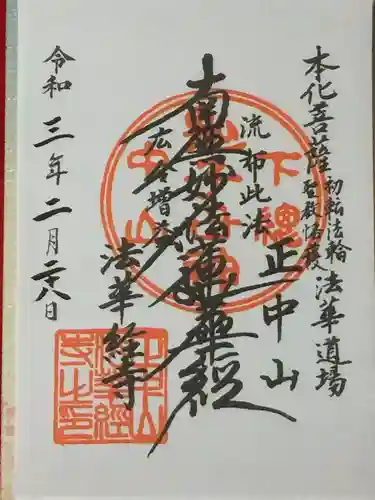 本化菩薩初転法輪法華道場
聖教格護
正中山
流布此法
南無妙法蓮華経
広令増益
法華経寺
令和三年二月二十八日
下總
中山